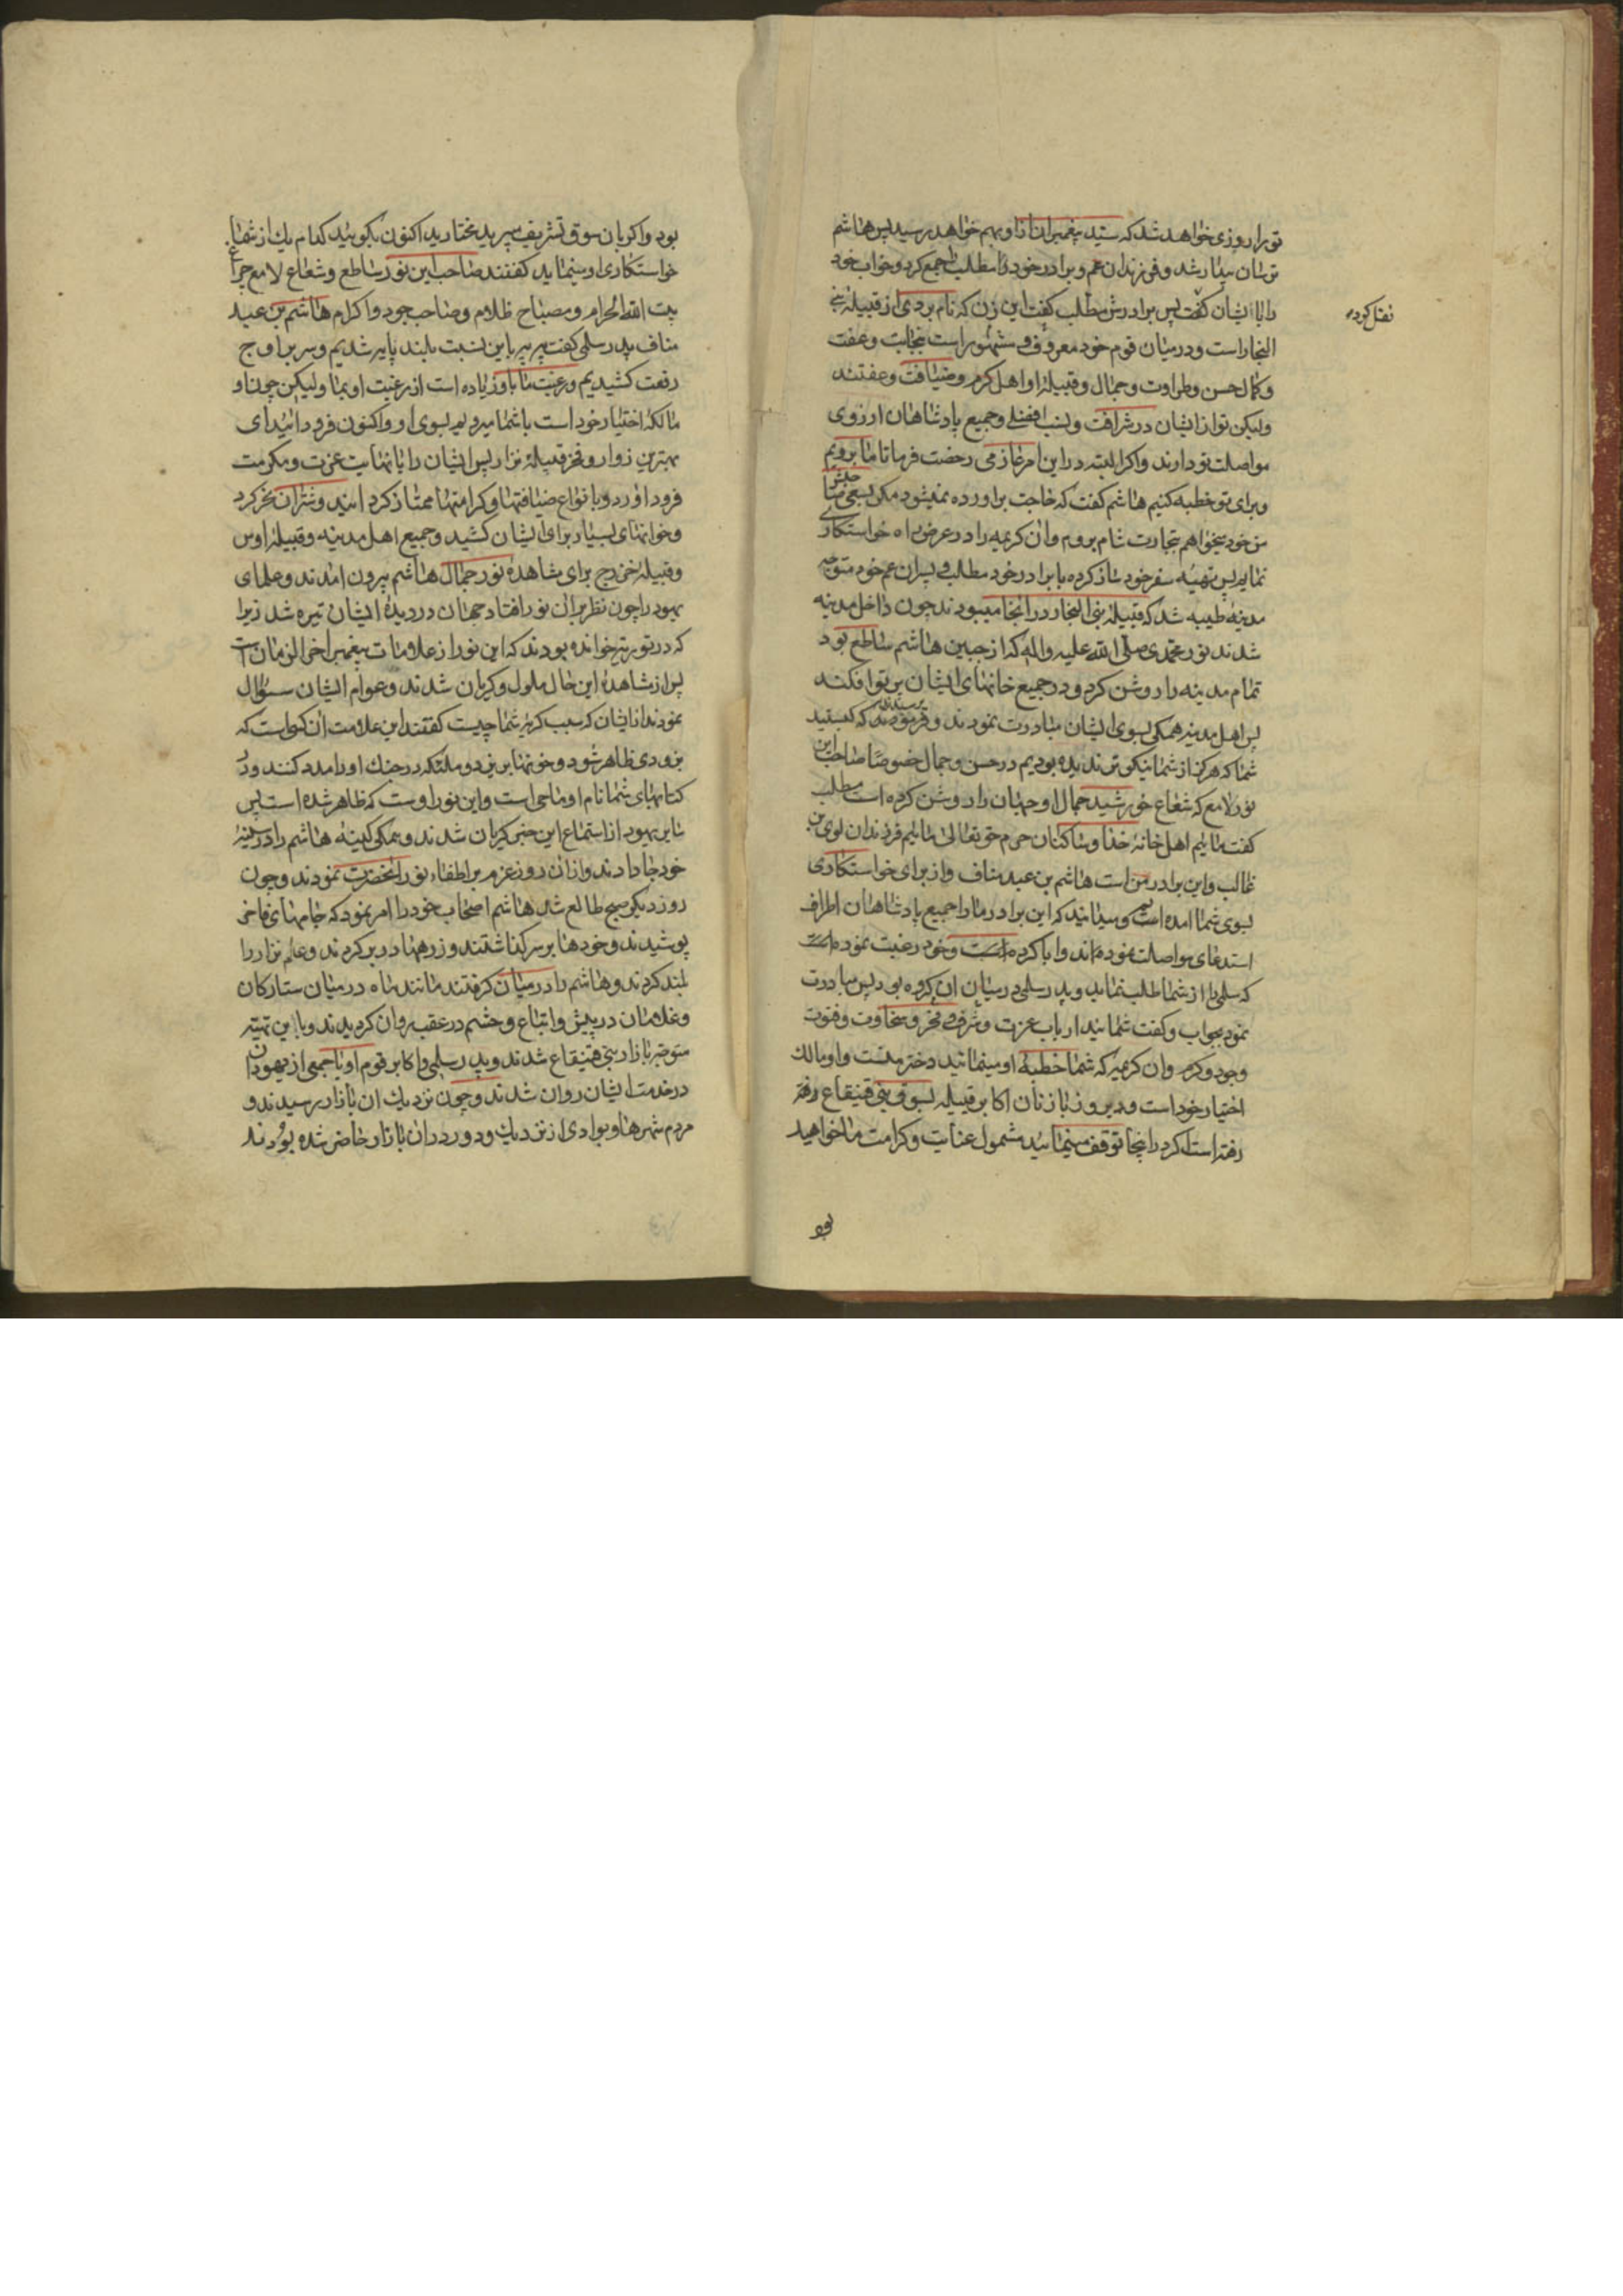 تورا روزی خواهد شد که سید پیغمبران از او بهم خواهد رسید پس هاشم
ترسان بیدار شد و فرزندان عم و برادر خود را مطلب را جمع کرد و خواب خود
را با ایشان گفت پس برادرش مطلب گفت این زن که نام بردی از قبیله بنی
نقل کرد
النجار است و در میان قوم خود معروف و مشهور است بنجابت و عفت
و کمال حسن و طراوت و جمال و قبیله او اهل کرم و ضیافت و عفتند
ولیکن تو از ایشان در شرافت و نسب افضلی و جمیع پادشاهان ارزوی
مواصلت تو دارند و اکر البته در این امر عازمی رخصت فرما تا ما برویم
و برای تو خطبه کنیم هاشم گفت که حاجت براورده نمیشود مکر بسعی صاحبش
من خود میخواهم بتجارت شام بروم و ان کریمه را در عرض راه خواستکاری
نمایم پس تهیه سفر خود ساز کرده با برادر خود مطلب و پسران عم خود متوجه
مدینه طیبه شد که قبیله بنی النجار در انجا میبودند چون داخل مدینه
شدند نور محمدی صلی الله علیه واله که از جبین هاشم ساطع بود
تمام مدینه را روشن کرد و در جمیع خانهای ایشان پرتو افکند
پس اهل مدینه همکی بسوی ایشان مبادرت نمودند و پرسیدند که کیستید
شما که هرکز از شما نیکوتر ندیده بودیم در حسن و جمال خصوصا صاحب این
نور لامع که شعاع خورشید جمال او جهان را روشن کرده است مطلب
گفت مائیم اهل خانه خدا و ساکنان حرم حق تعالی مائیم فرزندان لوی بن
غالب و این برادر من است هاشم بن عبد مناف و از برای خواستکاری
بسوی شما امده است و میدانید که این برادر ما را جمیع پادشاهان اطراف
استدعای مواصلت نموده‌اند و ابا کرده است و خود رغبت نموده است
که سلمی را از شما طلب نماید و پدر سلمی در میان ان کروه بود پس مبادرت
نمود بجواب و کفت شمائید ارباب عزت و شرف و فخر و سخاوت و فتوت
وجود و کرم و ان کریمه که شما خطبه او مینمائید دختر منست و او مالک
اختیار خود است و دیروز با زنان اکابر قبیله بسوق بنی قینقاع رفته
رفته است اکر در اینجا توقف مینمائید مشمول عنایت و کرامت ما خواهید
بود
بود و اکر بان سوق تشریف میبرید مختارید اکنون بکوئید کدام یک از شما
خواستکاری او مینماید کفتند صاحب این نور ساطع و شعاع لامع چراغ
بیت الله الحرام و مصباح ظلام و صاحب جود و اکرام هاشم بن عبد
مناف پدر سلمی کفت به به باین نسبت بلند پایه شدیم و سر بر اوج
رفعت کشیدیم و رغبت ما باو زیاده است از رغبت او بما ولیکن چون او
مالکه اختیار خود است با شما میرویم بسوی او و اکنون فرود ائید ای
بهترین زوار و فخر قبیله نزار پس ایشان را با نهایت عزت و مکرمت
فرود اورد و بانواع ضیافتها و کرامتها ممتاز کردانید و شتران نحر کرد
و خوانهای بسیار برای ایشان کشید و جمیع اهل مدینه و قبیله اوس
و قبیله خزرج برای مشاهده نور جمال هاشم بیرون امدند و علمای
یهود را چون نظر بر ان نور افتاد جهان در دیده ایشان تیره شد زیرا
که در توریة خوانده بودند که این نور از علامات پیغمبر اخر الزمان است
پس از مشاهده این حال ملول و کریان شدند و عوام ایشان سؤال
نمودند از ایشان که سبب کریه شما چیست کفتند این علامت ان کسی است که
بزودی ظاهر شود و خونها بریزد و ملئکه در جنک او را مدد کنند و در
کتابهای شما نام او ماحی است و این نور اوست که ظاهر شده است پس
سایر یهود از استماع این خبر کریان شدند و همکی کینه هاشم را در سینه
خود جا دادند و از ان روز عزم بر اطفاء نور انحضرت نمودند و چون
روز دیکر صبح طالع شد هاشم اصحاب خود را امر نمود که جامهای فاخر
پوشیدند و خودها بر سر کذاشتند و زرهها در بر کردند و علم نزار را
بلند کردند و هاشم را در میان کرفتند مانند ماه در میان ستارکان
و غلامان در پیش و اتباع و حشم در عقب روان کردیدند و با این تهیه
متوجه بازار بنی قینقاع شدند و پدر سلمی و اکابر قوم او با جمعی از یهودان
در خدمت ایشان روان شدند و چون نزدیک ان بازار رسیدند و
مردم شهرها و بوادی از نزدیک و دور در ان بازار حاضر شده بودند